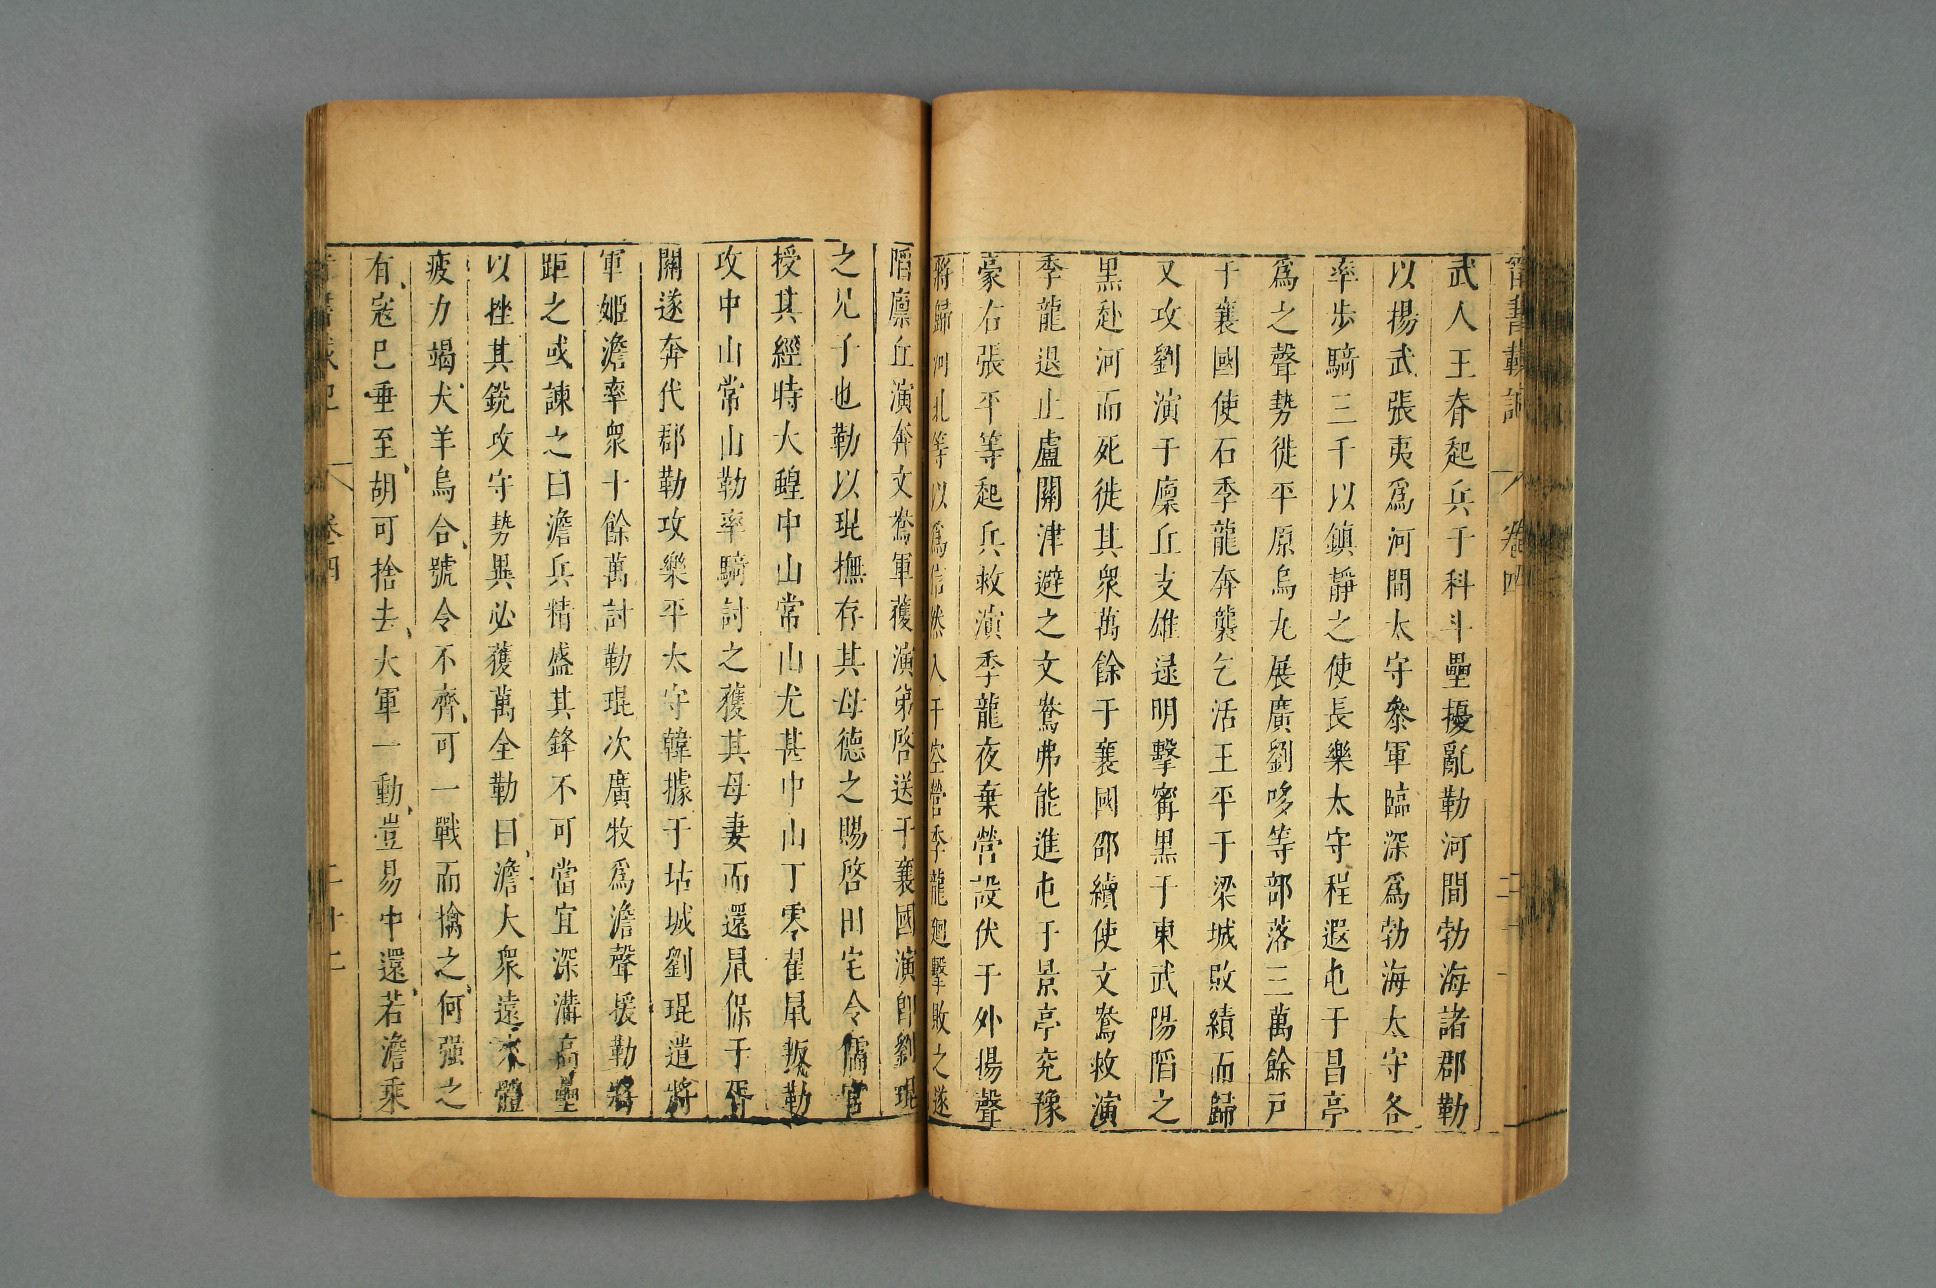 晉書載記 卷四
武人王眘起兵于科斗壘擾亂勒河間勃海諸郡勒
以揚武張夷爲河間太守叅軍臨深爲勃海太守各
率步騎三千以鎮靜之使長樂太守程遐屯于昌亭
爲之聲勢徙平原烏丸展廣劉哆等部落三萬餘戸
于襄國使石季龍奔襲乞活王平于梁城敗績而歸
又攻劉演于廩丘支雄逯明擊甯黑于東武陽陷之
黑赴河而死徙其衆萬餘于襄國邵續使文鴦救演
季龍退止盧關津避之文鴦弗能進屯于景亭兖豫
豪右張平等起兵救演季龍夜棄營設伏于外揚聲
將歸河北等以爲信然入于空營季龍廻擊敗之遂
陷廩丘演奔文鴦軍獲演弟啓送于襄國演卽劉琨
之兄子也勒以琨撫存其母德之賜啓田宅令儒官
授其經時大蝗中山常山尤甚中山丁零翟鼠叛勒
攻中山常山勒率騎討之獲其母妻而還鼠保于胥
關遂奔代郡勒攻樂平太守韓據于坫城劉琨遣將
軍姬澹率衆十餘萬討勒琨次廣牧爲澹聲援勒將
距之或諫之曰澹兵精盛其鋒不可當宜深溝高壘
以挫其銳攻守勢異必獲萬全勒曰澹大衆遠來體
疲力竭犬羊烏合號令不齊可一戰而擒之何强之
有寇已垂至胡可捨去大軍一動豈易中還若澹乘
卷四